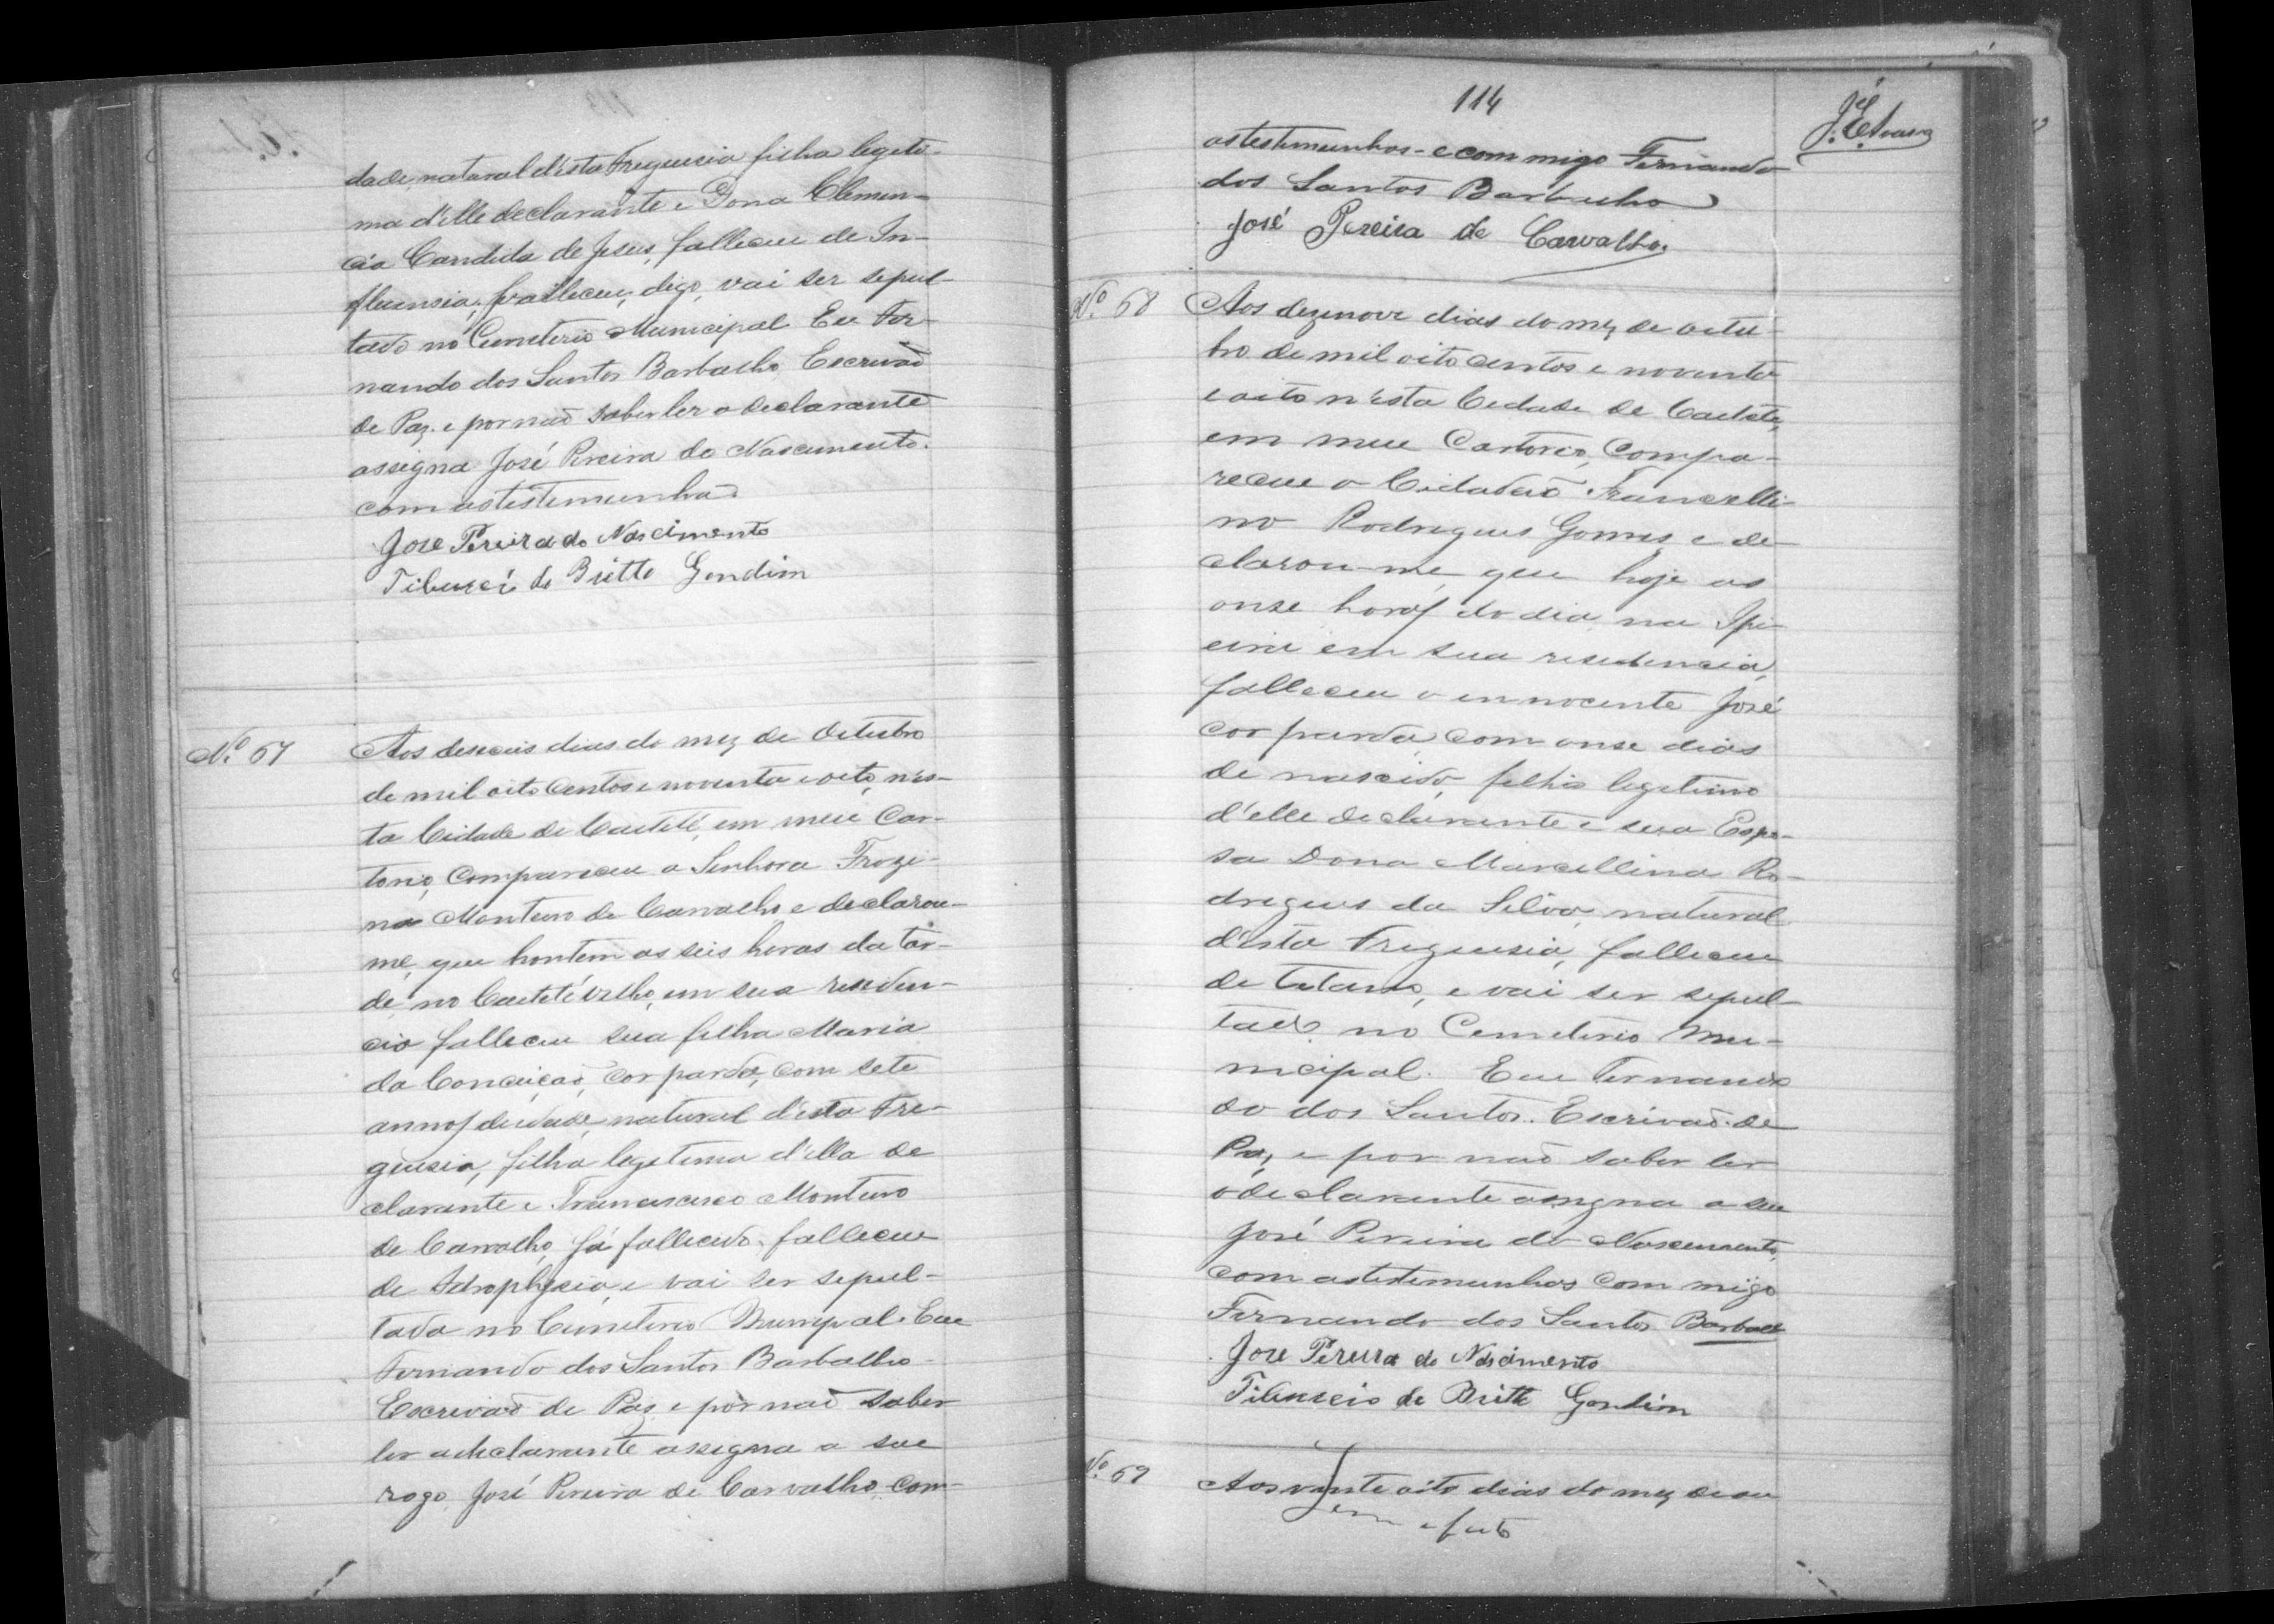 dade, natural d'esta Freguesia filha legeti-
ma d'elle declarante e Dona Clemen-
cia Candida de Jesus, falleceu de In-
fluensia, falleceu, digo, vai ser sepul-
tado no Cemeterio Municipal Eu Fer-
nando dos Santos Barbalho Escrivaõ
de Paz. e por naõ saber ler o declarante
assigna José Pereira do Nascimento.
com as testemunhas
Jose Pereira do Nascimento
Tiburci de Britto Gondim
Nº 67
Aos deseis dias do mez de Outubro
de mil oito centos e noventa e oito, n'es-
ta Cidade de Caeteté, em meu Car-
torio, compareceu a Senhora Frozi-
na Monteiro de Carvalho, e declarou-
me, que hontem as seis horas da tar-
de, no Caeteté velho, em sua residen-
cia falleceu sua filha Maria
da Conceiçaõ, cor parda, com sete
annos de idade, natural d'esta Fre-
guesia, filha legetima d'ella de
clarante e Francisco Monteiro
de Carvalho, já fallecido. falleceu
de Idrophesia, e vai ser sepul-
tada no Cemeterio Municipal. Eu
Fernando dos Santos Barbalho
Escrivaõ de Paz e por naõ saber
ler a declarante assigna a seu
rogo, José Pereira de Carvalho com
114
as testemunhas e com migo Fernando
dos Santos Barbalho
José Pereira de Carvalho.
Nº 68
Aos dezenove dias do mez de outu-
bro de mil oito centos e noventa
e oito n'esta Cidade de Caeteté,
em meu Cartorio, compa-
receu o Cidadaõ Francelli-
no Rodrigues Gomes e de
clarou-me, que hoje as
onse horas do dia, na
em sua residencia,
falleceu o innocente José
cor parda, com onse dias
de nascido, filho legetimo
d'elle declarante e sua Espo-
sa Dona Marcellina Ro-
drigues da Silva, natural
d'esta Freguesia, falleceu
de tetano, e vai ser sepul-
tado no Cemeterio Mu-
nicipal. Eu Fernan
do dos Santos. Escrivaõ de
Paz, e por naõ saber ler
o declarante assigna a seu
José Pereira do Nascimento,
com as testemunhas com migo
Fernando dos Santos Barbalh
Jose Pereira do Nascimento
Tiburcio de Britto Gondim
Nº 69
Aos vinte oito dias do mez de ou
Sem efeito